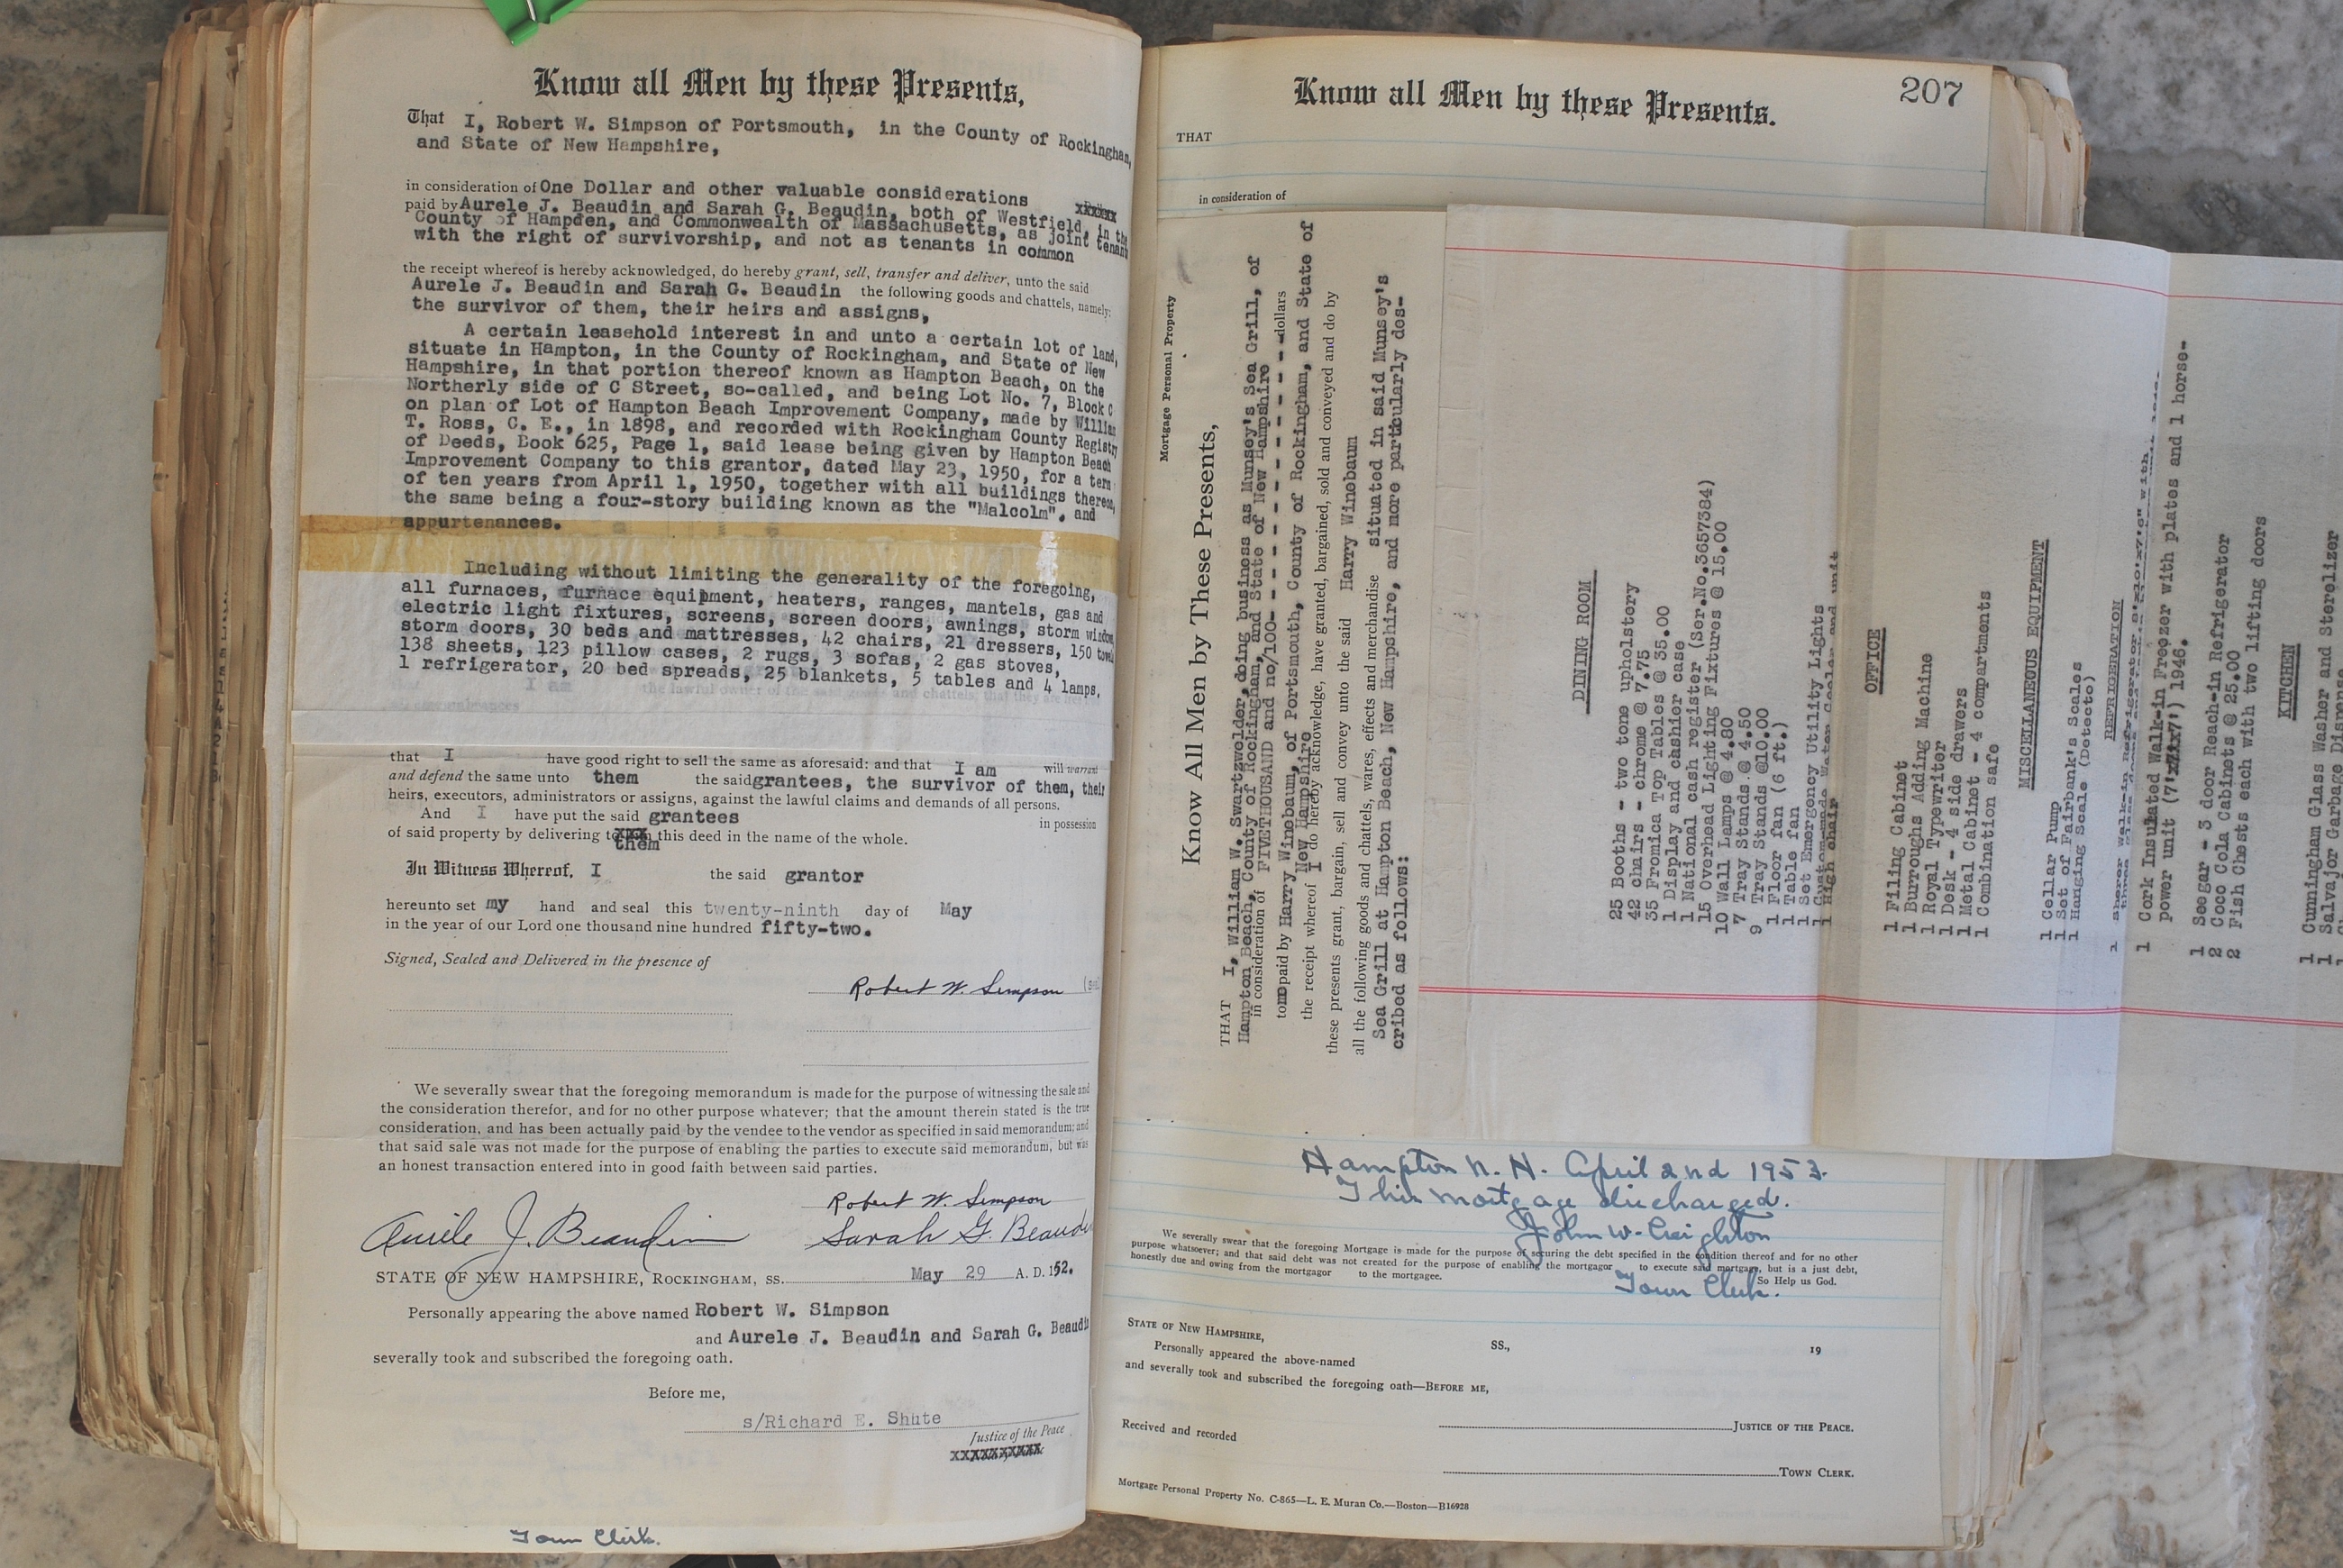 Know all Men by these Presents,
That I, Robert W. Simpson of Portsmouth, in the County of Rockingham,
and State of New Hampshire,
in consideration of One Dollar and other valuable considerations xxxxxx
paid by Aurele J. Beaudin and Sarah G. Beaudin, both of Westfield, in the
County of Hampden, and Commonwealth of Massachusetts, as joint tenant
with the right of survivorship, and not as tenants in common
the receipt whereof is hereby acknowledged, do hereby grant, sell, transfer and deliver, unto the said
Aurele J. Beaudin and Sarah G. Beaudin the following goods and chattels, namely:
the survivor of them, their heirs and assigns,
A certain leasehold interest in and unto a certain lot of land,
situate in Hampton, in the County of Rockingham, and State of New
Hampshire, in that portion thereof known as Hampton Beach, on the
Northerly side of C Street, so-called, and being Lot No. 7, Block C
on plan of Lot of Hampton Beach Improvement Company, made by William
T. Ross, C. E., in 1898, and recorded with Rockingham County Registry
of Deeds, Book 625, Page 1, said lease being given by Hampton Beach
Improvement Company to this grantor, dated May 23, 1950, for a term
of ten years from April 1, 1950, together with all buildings thereon,
the same being a four-story building known as the "Malcolm", and
appurtenances.
Including without limiting the generality of the foregoing,
all furnaces, furnace equipment, heaters, ranges, mantels, gas and
electric light fixtures, screens, screen doors, awnings, storm windows,
storm doors, 30 beds and mattresses, 42 chairs, 21 dressers, 150 towels
138 sheets, 123 pillow cases, 2 rugs, 3 sofas, 2 gas stoves,
1 refrigerator, 20 bed spreads, 25 blankets, 5 tables and 4 lamps.
I am the lawful owner of the said goods and chattels; that they are
that I have good right to sell the same as aforesaid: and that I am will warrant
and defend the same unto them the said grantees, the survivor of them, their
heirs, executors, administrators or assigns, against the lawful claims and demands of all persons.
And I have put the said grantees in possession
of said property by delivering to them this deed in the name of the whole.
In Witness Whereof, I the said grantor
hereunto set my hand and seal this twenty-ninth day of May
in the year of our Lord one thousand nine hundred fifty-two.
Signed, Sealed and Delivered in the presence of
Robert W. Simpson
We severally swear that the foregoing memorandum is made for the purpose of witnessing the sale and
the consideration therefor, and for no other purpose whatever; that the amount therein stated is the true
consideration, and has been actually paid by the vendee to the vendor as specified in said memorandum; and
that said sale was not made for the purpose of enabling the parties to execute said memorandum, but was
an honest transaction entered into in good faith between said parties.
Robert W. Simpson
Aurele J. Beaudin Sarah G. Beaudin
STATE OF NEW HAMPSHIRE, ROCKINGHAM, SS. May 29 A. D. 152.
Personally appearing the above named Robert W. Simpson
and Aurele J. Beaudin and Sarah G. Beaudin
severally took and subscribed the foregoing oath.
Before me,
s/Richard E. Shute
Justice of the Peace
xxxxxxxxxxx
Town Clerk.
Know all Men by these Presents. 207
THAT
in consideration of
Mortgage Personal Property
Know All Men by These Presents,
THAT I, William W. Swartzwelder, doing business as Munsey's Sea Grill, of
Hampton Beach, County of Rockingham, and State of New Hampshire
in consideration of FIVETHOUSAND and no/100- - - - - - - - - - dollars
to me paid by Harry Winebaum, of Portsmouth, County of Rockingham, and State of
New Hampshire
the receipt whereof I do hereby acknowledge, have granted, bargained, sold and conveyed and do by
these presents grant, bargain, sell and convey unto the said Harry Winebaum
all the following goods and chattels, wares, effects and merchandise situated in said Munsey's
Sea Grill at Hampton Beach, New Hampshire, and more particularly des-
cribed as follows:
DINING ROOM
25 Booths - two tone upholstery
42 chairs - chrome @ 7.75
35 Fromica Top Tables @ 35.00
1 Display and cashier case
1 National cash register (Ser.No.3657384)
15 Overhead Lighting Fixtures @ 15.00
10 Wall Lamps @ 4.80
7 Tray Stands @ 4.50
9 Tray Stands @10.00
1 Floor fan (6 ft.)
1 Table fan
1 Set Emergency Utility Lights
1 Custom-made Water Cooler and unit
1 High chair
OFFICE
1 Filing Cabinet
1 Burroughs Adding Machine
1 Royal Typewriter
1 Desk - 4 side drawers
1 Metal Cabinet - 4 compartments
1 Combination safe
MISCELLANEOUS EQUIPMENT
1 Cellar Pump
1 Set of Fairbank's Scales
1 Hanging Scale (Detecto)
REFRIGERATION
1 Sherer Walk-in Refrigerator
1 Cork Insulated Walk-in Freezer with plates and 1 horse-
power unit (7'x7'x7') 1946.
1 Seegar - 3 door Reach-in Refrigerator
2 Coco Cola Cabinets @ 25.00
2 Fish Chests each with two lifting doors
KITCHEN
1 Cunningham Glass Washer and Sterelizer
1 Salvajor Garbage
Hampton N. H. April 2nd 1953.
This mortgage discharged.
John W. Creighton
Town Clerk.
We severally swear that the foregoing Mortgage is made for the purpose of securing the debt specified in the condition thereof and for no other
purpose whatsoever; and that said debt was not created for the purpose of enabling the mortgagor to execute said mortgage, but is a just debt,
honestly due and owing from the mortgagor to the mortgagee. So Help us God.
STATE OF NEW HAMPSHIRE, SS., 19
Personally appeared the above-named
and severally took and subscribed the foregoing oath—BEFORE ME,
JUSTICE OF THE PEACE.
Received and recorded
TOWN CLERK.
Mortgage Personal Property No. C-865—L. E. Muran Co.—Boston—B16928